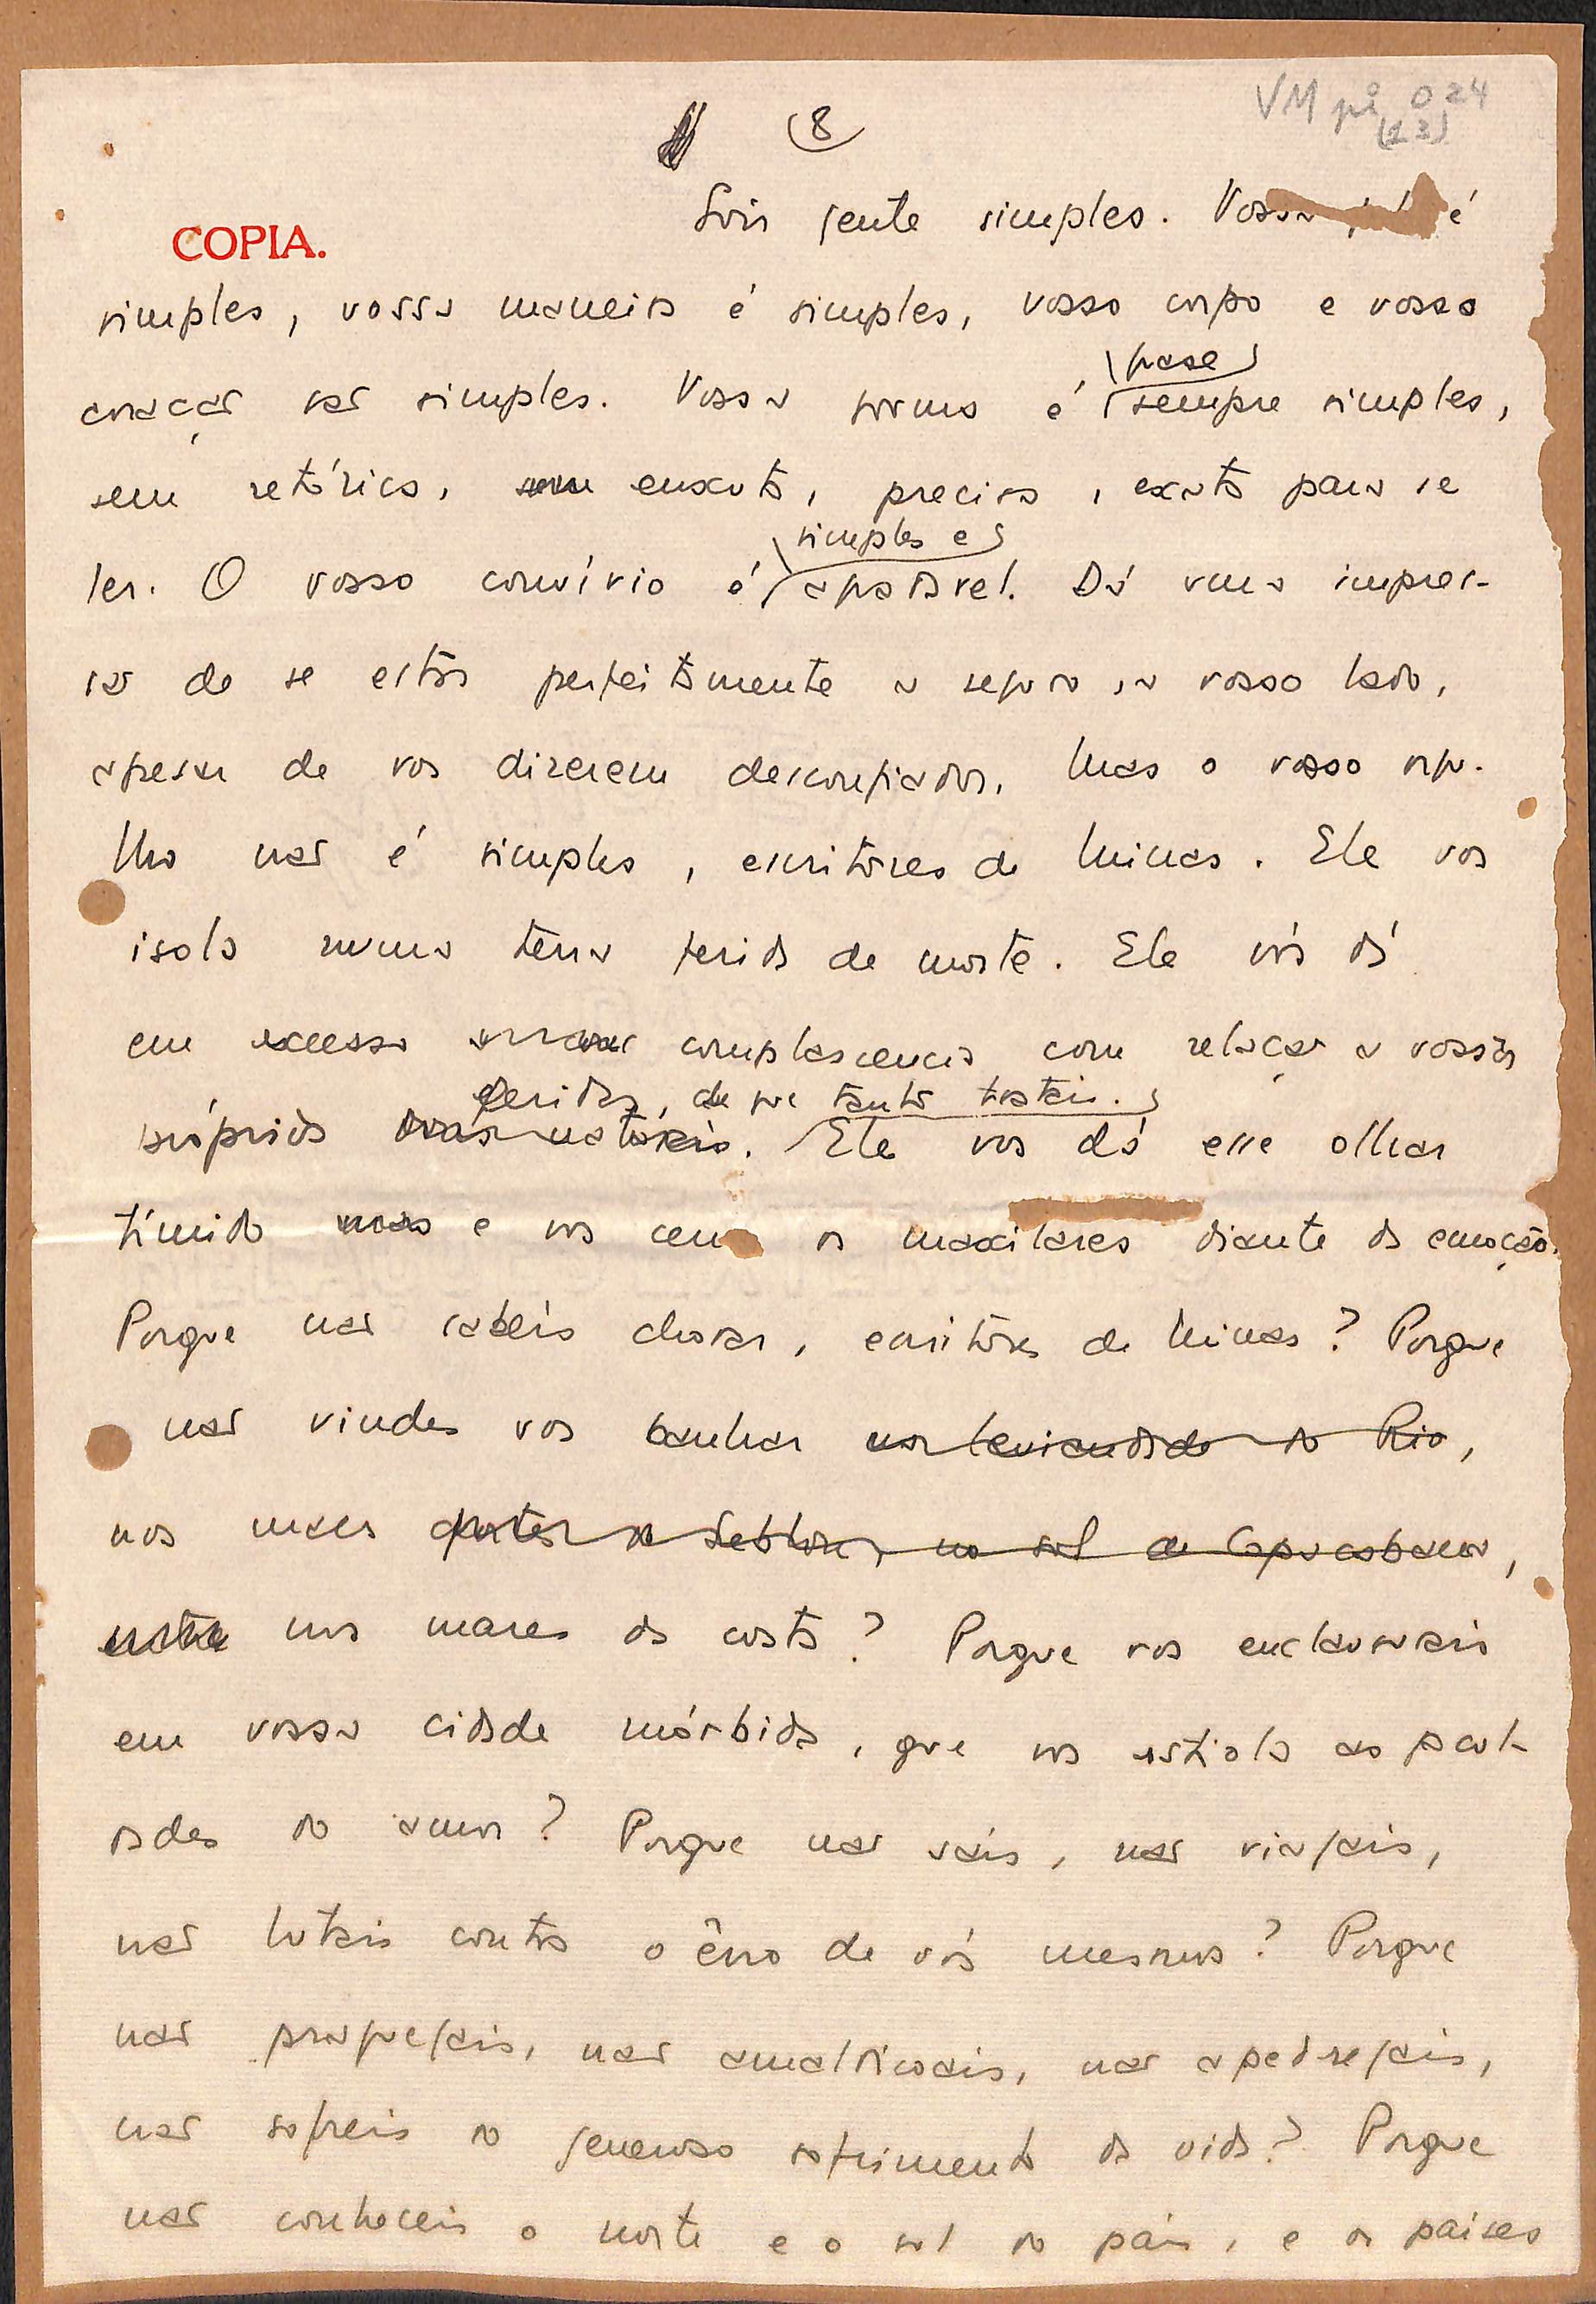 VM pi 024
(13)
8
COPIA.
Sois gente simples. Vossa é
simples, vossa maneira é simples, vosso corpo e vosso
coração são simples. Vossa forma é quase sempre simples,
sem retórica, enxuta, precisa, exata para se
ler. O vosso convívio é simples e agradável. Dá uma impres-
são de se estar perfeitamente a seguro ao vosso lado,
apesar de vos dizerem desconfiados. Mas o vosso orgu-
lho não é simples, escritores de Minas. Ele vos
isola numa terra ferida de morte. Ele vos dá
em excesso complascencia com relação a vossas
próprias feridas, de que tanto gostais. Ele vos dá esse olhar
tímido e vos cerra os maxilares diante da emoção.
Porque não sabeis chorar, escritores de Minas? Porque
não vindes vos banhar na leviandade do Rio,
nos mares do Leblon, no sol de Copacabana,
nos mares da costa? Porque vos enclausurais
em vossa cidade mórbida, que vos estiola as
do amor? Porque não saís, não viajais,
não lutais contra o êrro de vós mesmos? Porque
não praguejais, não amaldiçoais, não apedrejais,
não sofreis o generoso sofrimento da vida? Porque
não conheceis o norte e o sul do país, e os países